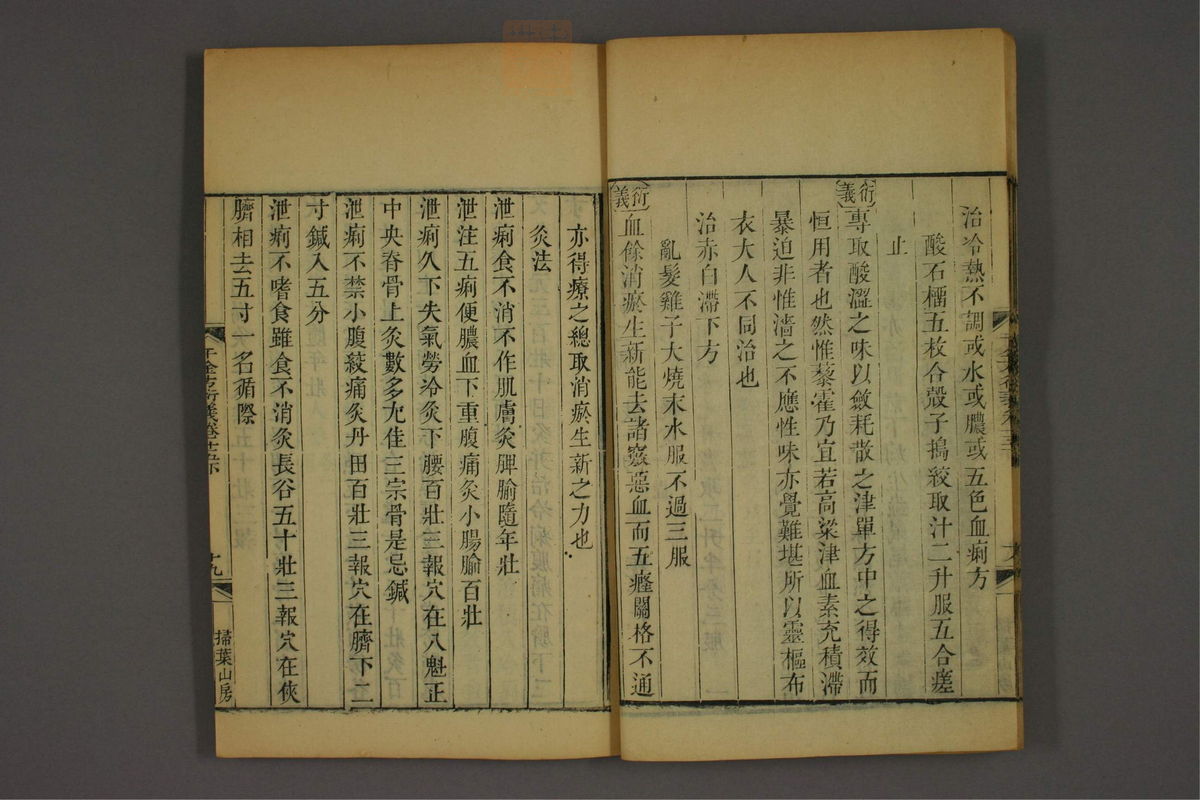 治冷熱不調或水或膿或五色血痢方
酸石榴五枚合殼子搗絞取汁二升服五合瘥
止
衍義
專取酸澀之味以斂耗散之津單方中之得效而
恒用者也然惟藜藿乃宜若高粱津血素充積滯
暴迫非惟濇之不應性味亦覺難堪所以靈樞布
衣大人不同治也
治赤白滯下方
亂髮雞子大燒末水服不過三服
衍義
血餘消瘀生新能去諸竅惡血而五癃關格不通
亦得療之總取消瘀生新之力也
灸法
泄痢食不消不作肌膚灸脾腧隨年壯
泄注五痢便膿血下重腹痛灸小腸腧百壯
泄痢久下失氣勞冷灸下腰百壯三報穴在八魁正
中央脊骨上灸數多尤佳三宗骨是忌鍼
泄痢不禁小腹絞痛灸丹田百壯三報穴在臍下二
寸鍼入五分
泄痢不嗜食雖食不消灸長谷五十壯三報穴在俠
臍相去五寸一名循際
千金方衍義卷十五下
十九
掃葉山房